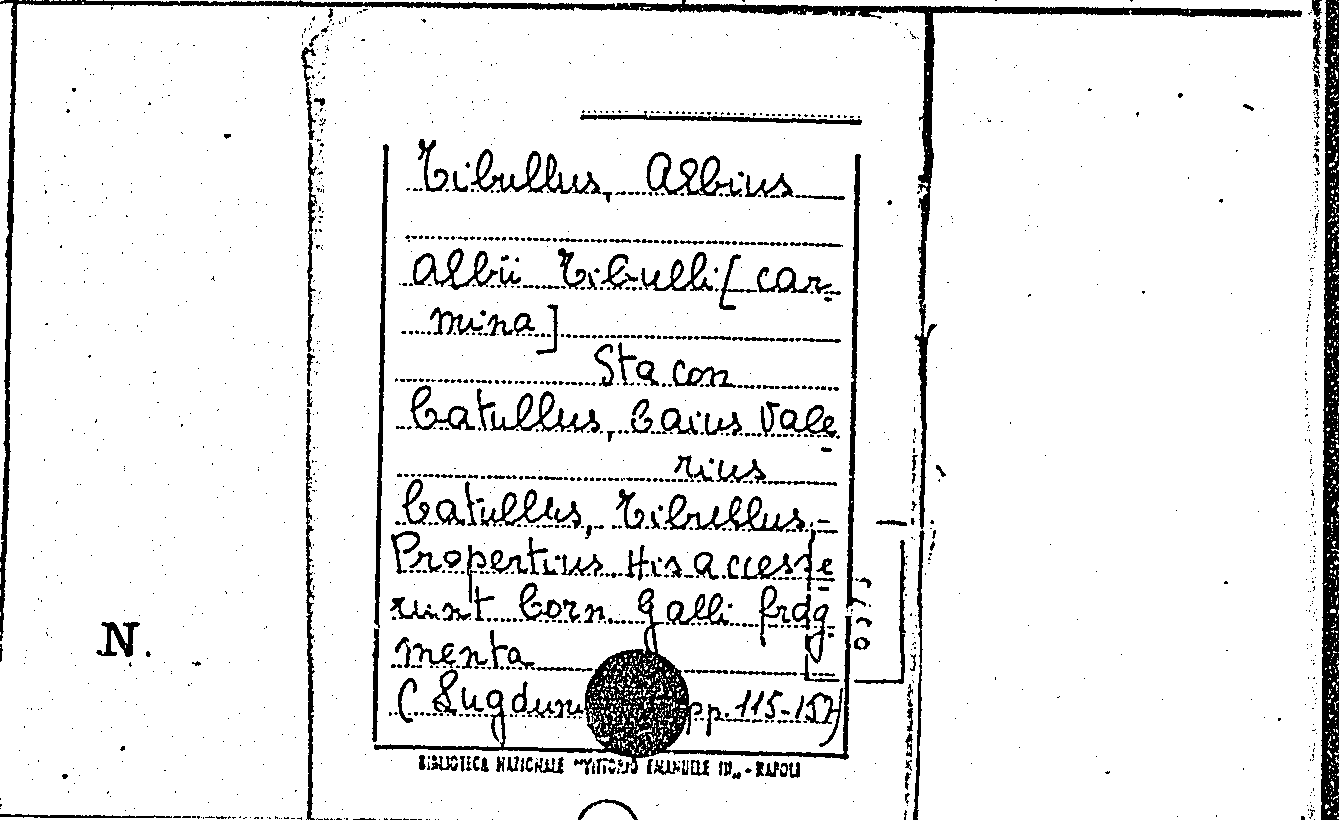 Tibullus, Albius
Albii Tibulli [car-
mina]
Sta con
Catullus, Caius Vale-
rius
Catullus, Tibullus,
Propertius His accesse-
runt Corn. Galli frag-
menta
(Lugduni pp. 115-157)
BIBLIOTECA NAZIONALE "VITTORIO EMANUELE III" - NAPOLI
N.